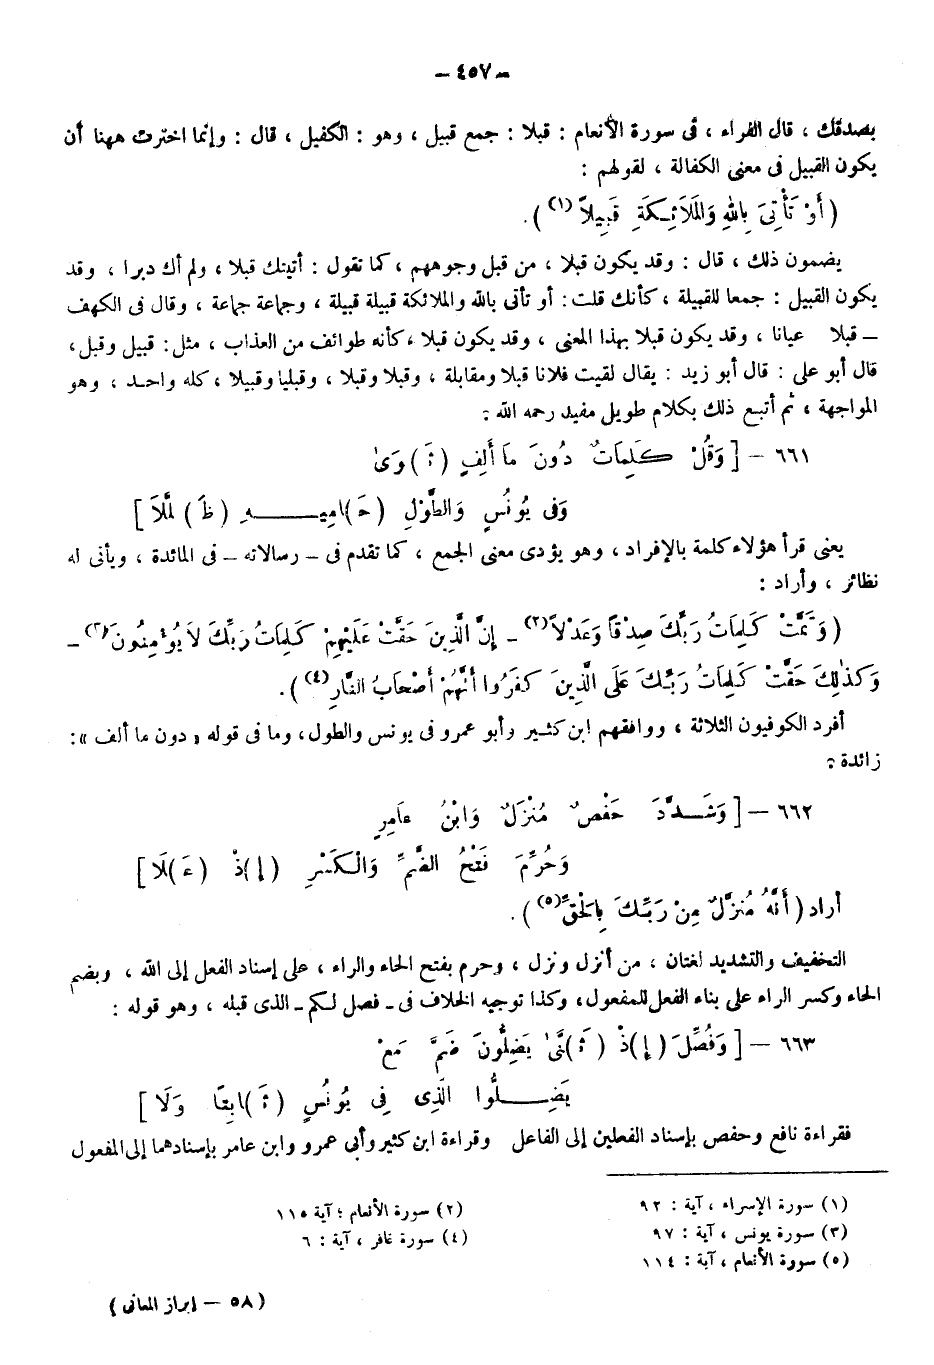 — ٤٥٧ —
يصدقك ، قال الفراء ، فى سورة الأنعام : قبلا : جمع قبيل ، وهو : الكفيل ، قال : وإنما اخترت ههنا أن
يكون القبيل فى معنى الكفالة ، لقولهم :
( أَوْ تَأْتِىَ بِاللهِ وَالمَلَائِكَةِ قَبِيلاً (١) ) .
يضمون ذلك ، قال : وقد يكون قبلا ، من قبل وجوههم ، كما تقول : أتيتك قبلا ، ولم أك دبرا ، وقد
يكون القبيل : جمعا للقبيلة ، كأنك قلت : أو تأتى بالله والملائكة قبيلة قبيلة ، وجماعة جماعة ، وقال فى الكهف
— قبلا عيانا ، وقد يكون قبلا بهذا المعنى ، وقد يكون قبلا ، كأنه طوائف من العذاب ، مثل : قبيل وقبل ،
قال أبو على : قال أبو زيد : يقال لقيت فلانا قبلا ومقابلة ، وقبلا وقبلا ، وقبليا وقبيلا ، كله واحد ، وهو
المواجهة ، ثم أتبع ذلك بكلام طويل مفيد رحمه الله :
٦٦١ — [ وَقُلْ كَلِمَاتٌ دُونَ مَا أَلِفٍ ( ثَ ) وَى
وَفى يُونُسٍ وَالطَّوْلِ ( حَ ) امِيهِ ( ظَ ) لَّلاَ ]
يعنى قرأ هؤلاء كلمة بالإفراد ، وهو يؤدى معنى الجمع ، كما تقدم فى — رسالاته — فى المائدة ، ويأتى له
نظائر ، وأراد :
( وَتَمَّتْ كَلِمَاتُ رَبِّكَ صِدْقًا وَعَدْلاً (٢) — إِنَّ الَّذِينَ حَقَّتْ عَلَيْهِمْ كَلِمَاتُ رَبِّكَ لَا يُؤْمِنُونَ (٣) —
وَكَذٰلِكَ حَقَّتْ كَلِمَاتُ رَبِّكَ عَلَى الَّذِينَ كَفَرُوا أَنَّهُمْ أَصْحَابُ النَّارِ (٤) ) .
أفرد الكوفيون الثلاثة ، ووافقهم ابن كثير وأبو عمرو فى يونس والطول ، وما فى قوله « دون ما ألف » :
زائدة :
٦٦٢ — [ وَشَدَّدَ حَفْصٌ مُنْزَلٌ وَابْنُ عَامِرٍ
وَحُرِّمَ فَتْحُ الضَّمِّ وَالْكَسْرِ ( إِ ) ذْ ( عَ ) لَا ]
أراد ( أَنَّهُ مُنَزَّلٌ مِنْ رَبِّكَ بِالْحَقِّ (٥) ) .
التخفيف والتشديد لغتان ، من أنزل ونزل ، وحرم بفتح الحاء والراء ، على إسناد الفعل إلى الله ، وبضم
الحاء وكسر الراء على بناء الفعل للمفعول ، وكذا توجيه الخلاف فى — فصل لكم — الذى قبله ، وهو قوله :
٦٦٣ — [ وَفُصِّلَ ( إِ ) ذْ ( ثَ ) نَّى يَضِلُّونَ ضُمَّ مَعْ
يَضِلُّوا الَّذِى فِى يُونُسٍ ( ثَ ) ابِتًا وَلَا ]
فقراءة نافع وحفص بإسناد الفعلين إلى الفاعل وقراءة ابن كثير وأبى عمرو وابن عامر بإسنادهما إلى المفعول
(١) سورة الإسراء ، آية : ٩٢
(٢) سورة الأنعام ؛ آية ١١٥
(٣) سورة يونس ، آية : ٩٧
(٤) سورة غافر ، آية : ٦
(٥) سورة الأنعام ، آية : ١١٤
( ٥٨ — إبراز المعانى )